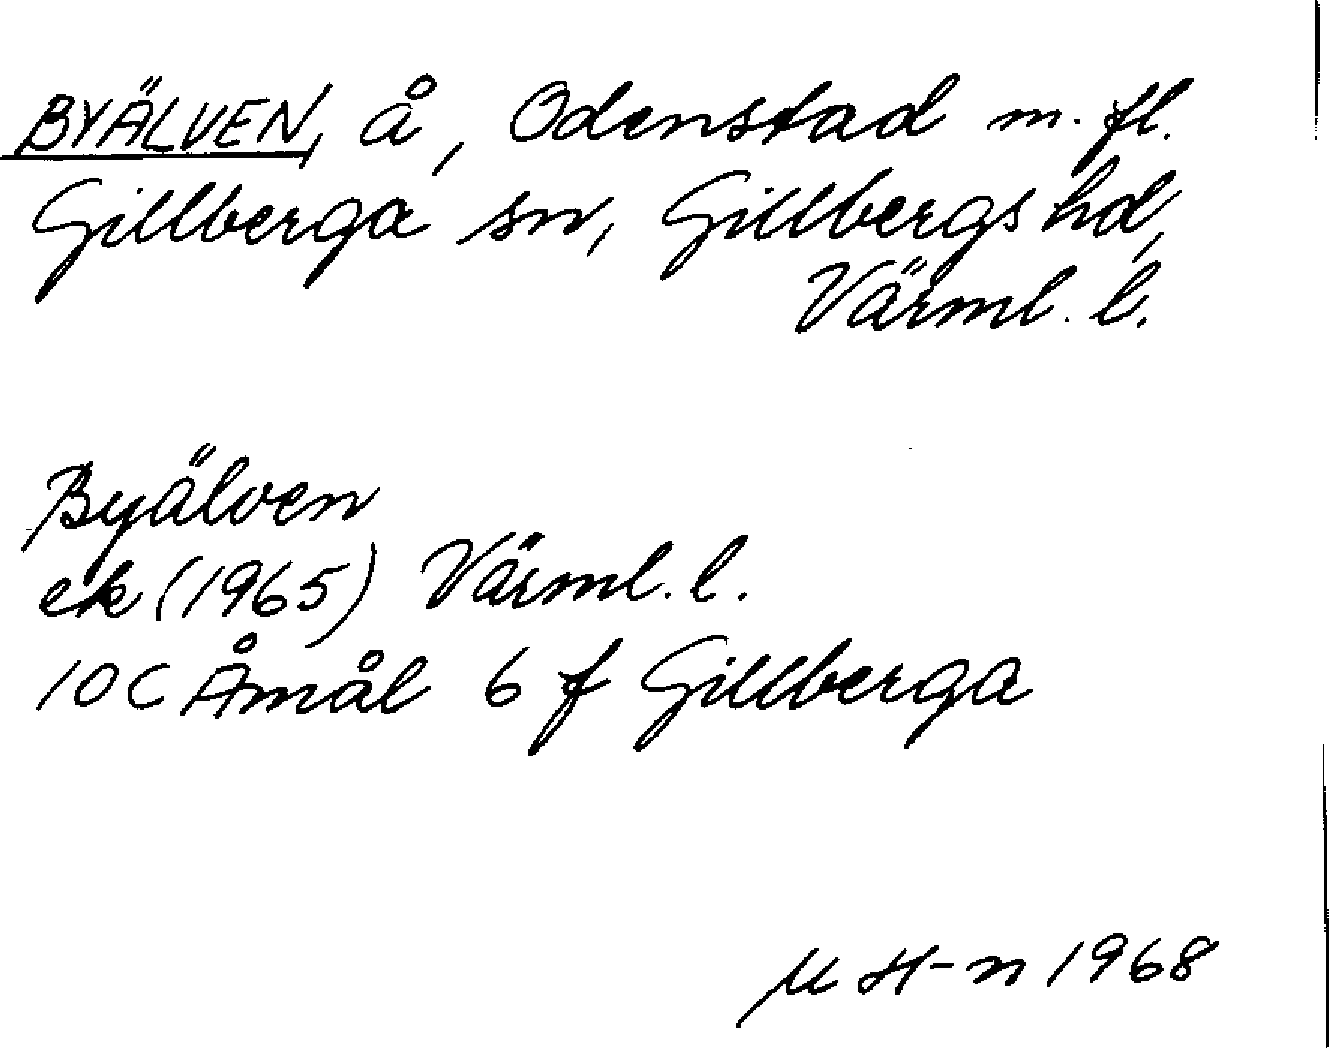 BYÄLVEN, å, Odenstad m. fl.
Gillberga sn, Gillbergs hd,
Värml. l.
Byälven
ek (1965) Värml. l.
10 C Åmål 6 f Gillberga
M H-n 1968